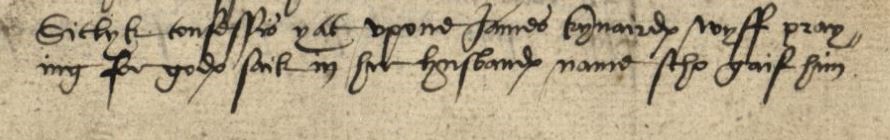 Siclyk confessis yat vpone James kynairdis wyff pray
ing for godis saik in hir husbandis name scho gaif him